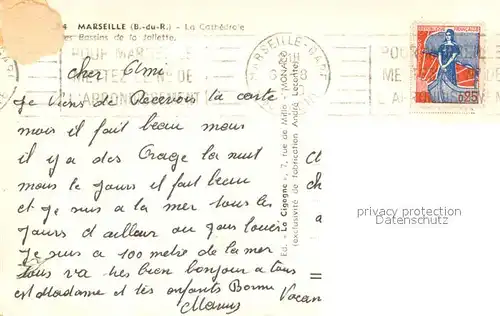 4 MARSEILLE (B.-du-R.) - La Cathédrale
es Bassins de la Joliette.
POUR
METTEZ N° DE
L'ARRONDISSEMENT
MARSEILLE-GARE
POUR
ME
L'A
0,25
cher Ami
je viens de Recevois ta carte
mais il fait beau mais
il y a des Orage la nuit
mais le jours il fait beau
et je suis a la mer tous les
jours d'ailleur au
Je suis a 100 metre de la mer
tous va tres bien bonjour a tous
est Madame et tes enfants Bonne
Vacan
Ed. - La Cigogne -, 7, rue de Millo - MONACO
(exclusivité de fabrication André Leconte)
privacy protection